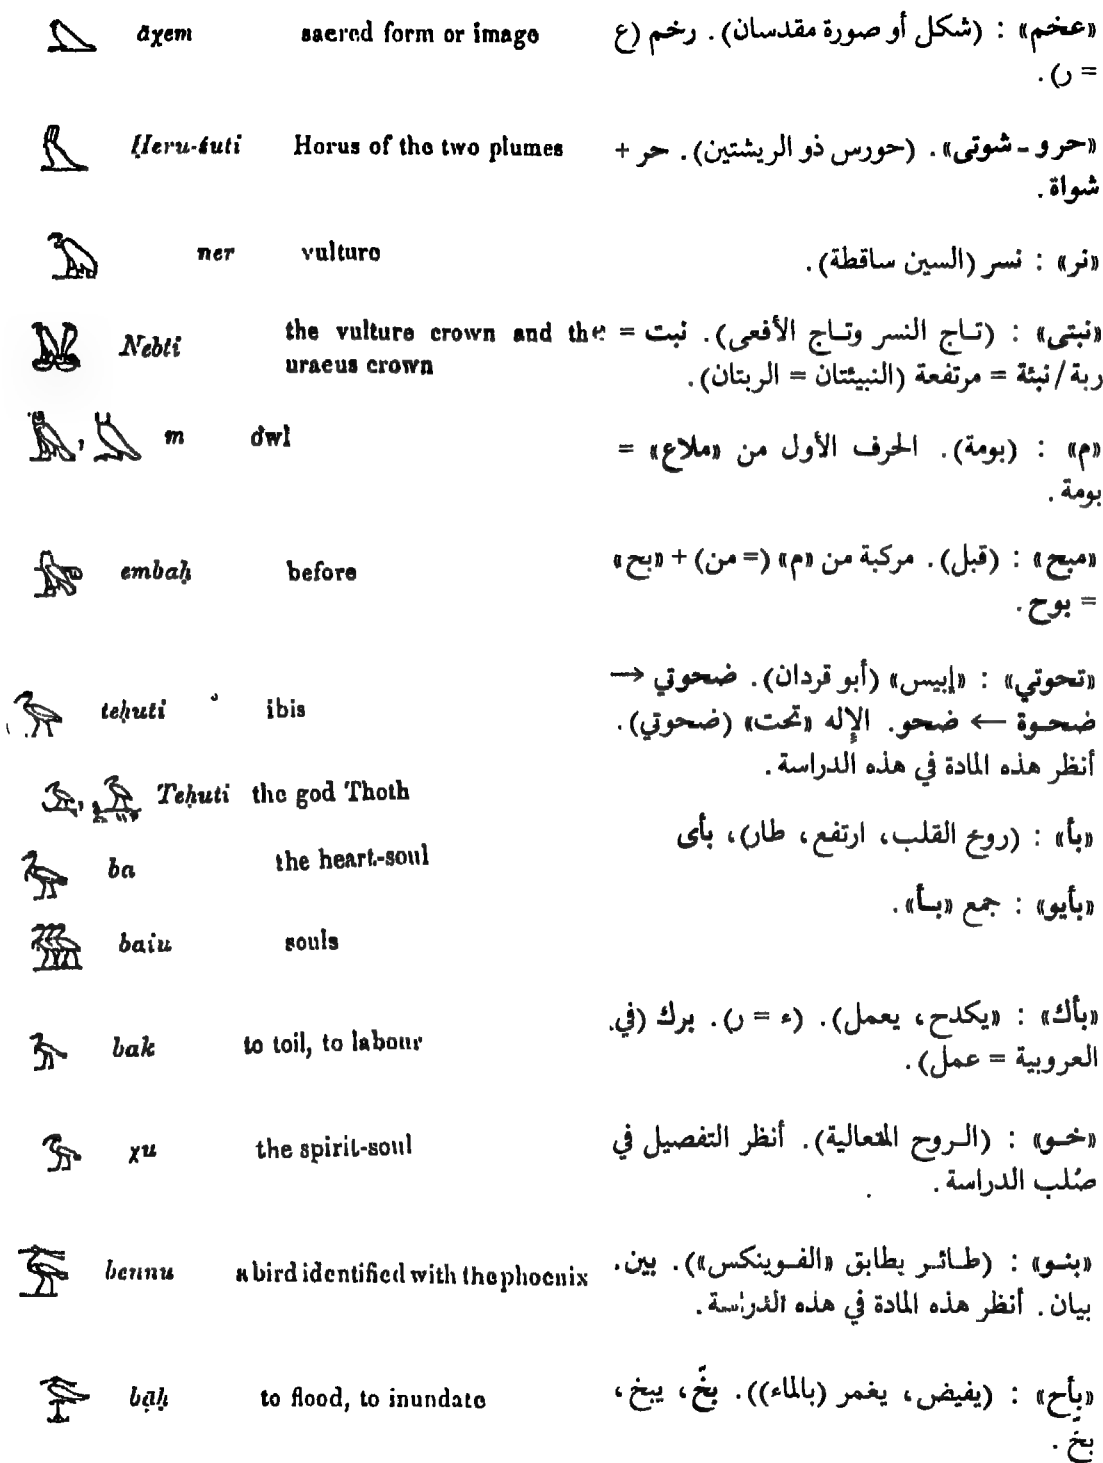 āχem sacred form or image «عخم» : (شكل أو صورة مقدسان). رخم (ع
= ر).
Ḥeru-śuti Horus of the two plumes «حرو - شوتى». (حورس ذو الريشتين). حر +
شواة.
ner vulture «نر» : نسر (السين ساقطة).
Nebti the vulture crown and the «نبتى» : (تاج النسر وتاج الأفعى). نبت =
uraeus crown ربة/نبئة = مرتفعة (النبيئتان = الربتان).
, m owl «م» : (بومة). الحرف الأول من «ملاع» =
بومة.
embaḥ before «مبح» : (قبل). مركبة من «م» (= من) + «بح»
= بوح.
teḥuti ibis «تحوتي» : «إبيس» (أبو قردان). ضحوتي ←
ضحوة ← ضحو. الإله «تحت» (ضحوتي).
أنظر هذه المادة في هذه الدراسة.
, Teḥuti the god Thoth
ba the heart-soul «بأ» : (روح القلب، ارتفع، طار)، بأى
«بأيو» : جمع «بأ».
baiu souls
bak to toil, to labour «بأك» : «يكدح، يعمل). (ء = ر). برك (في
العروبية = عمل).
χu the spirit-soul «خو» : (الروح المتعالية). أنظر التفصيل في
صُلب الدراسة.
bennu a bird identified with the phoenix «بنو» : (طائر يطابق «الفوينكس»). بين.
بيان. أنظر هذه المادة في هذه الدراسة.
bạḥ to flood, to inundate «بأح» : (يفيض، يغمر (بالماء)). بخّ، يبخ،
بخّ.